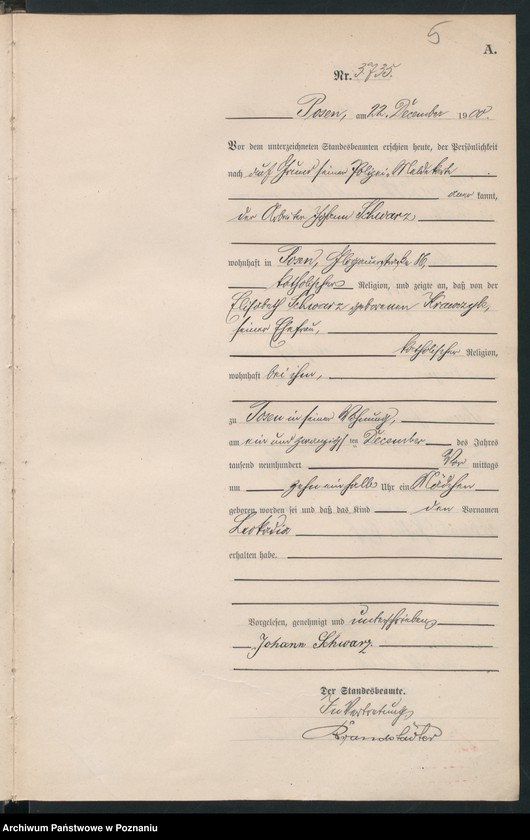 5
A.
Nr. 3735.
Posen, am 22. December 1900.
Vor dem unterzeichneten Standesbeamten erschien heute, der Persönlichkeit
nach auf Grund seiner Polizei-Meldekarte
aner kannt,
der Arbeiter Johann Schwarz
wohnhaft in Posen, Glogauerstraße 86,
katholischer Religion, und zeigte an, daß von der
Elisabeth Schwarz geborenen Krawczyk,
seiner Ehefrau,
katholischer Religion,
wohnhaft bei ihm,
zu Posen in seiner Wohnung,
am ein und zwanzigsten December des Jahres
tausend neunhundert Vor mittags
um zehn einhalb Uhr ein Mädchen
geboren worden sei und daß das Kind den Vornamen
Leokadia
erhalten habe.
Vorgelesen, genehmigt und unterschrieben
Johann Schwarz.
Der Standesbeamte.
In Vertretung
Archiwum Państwowe w Poznaniu